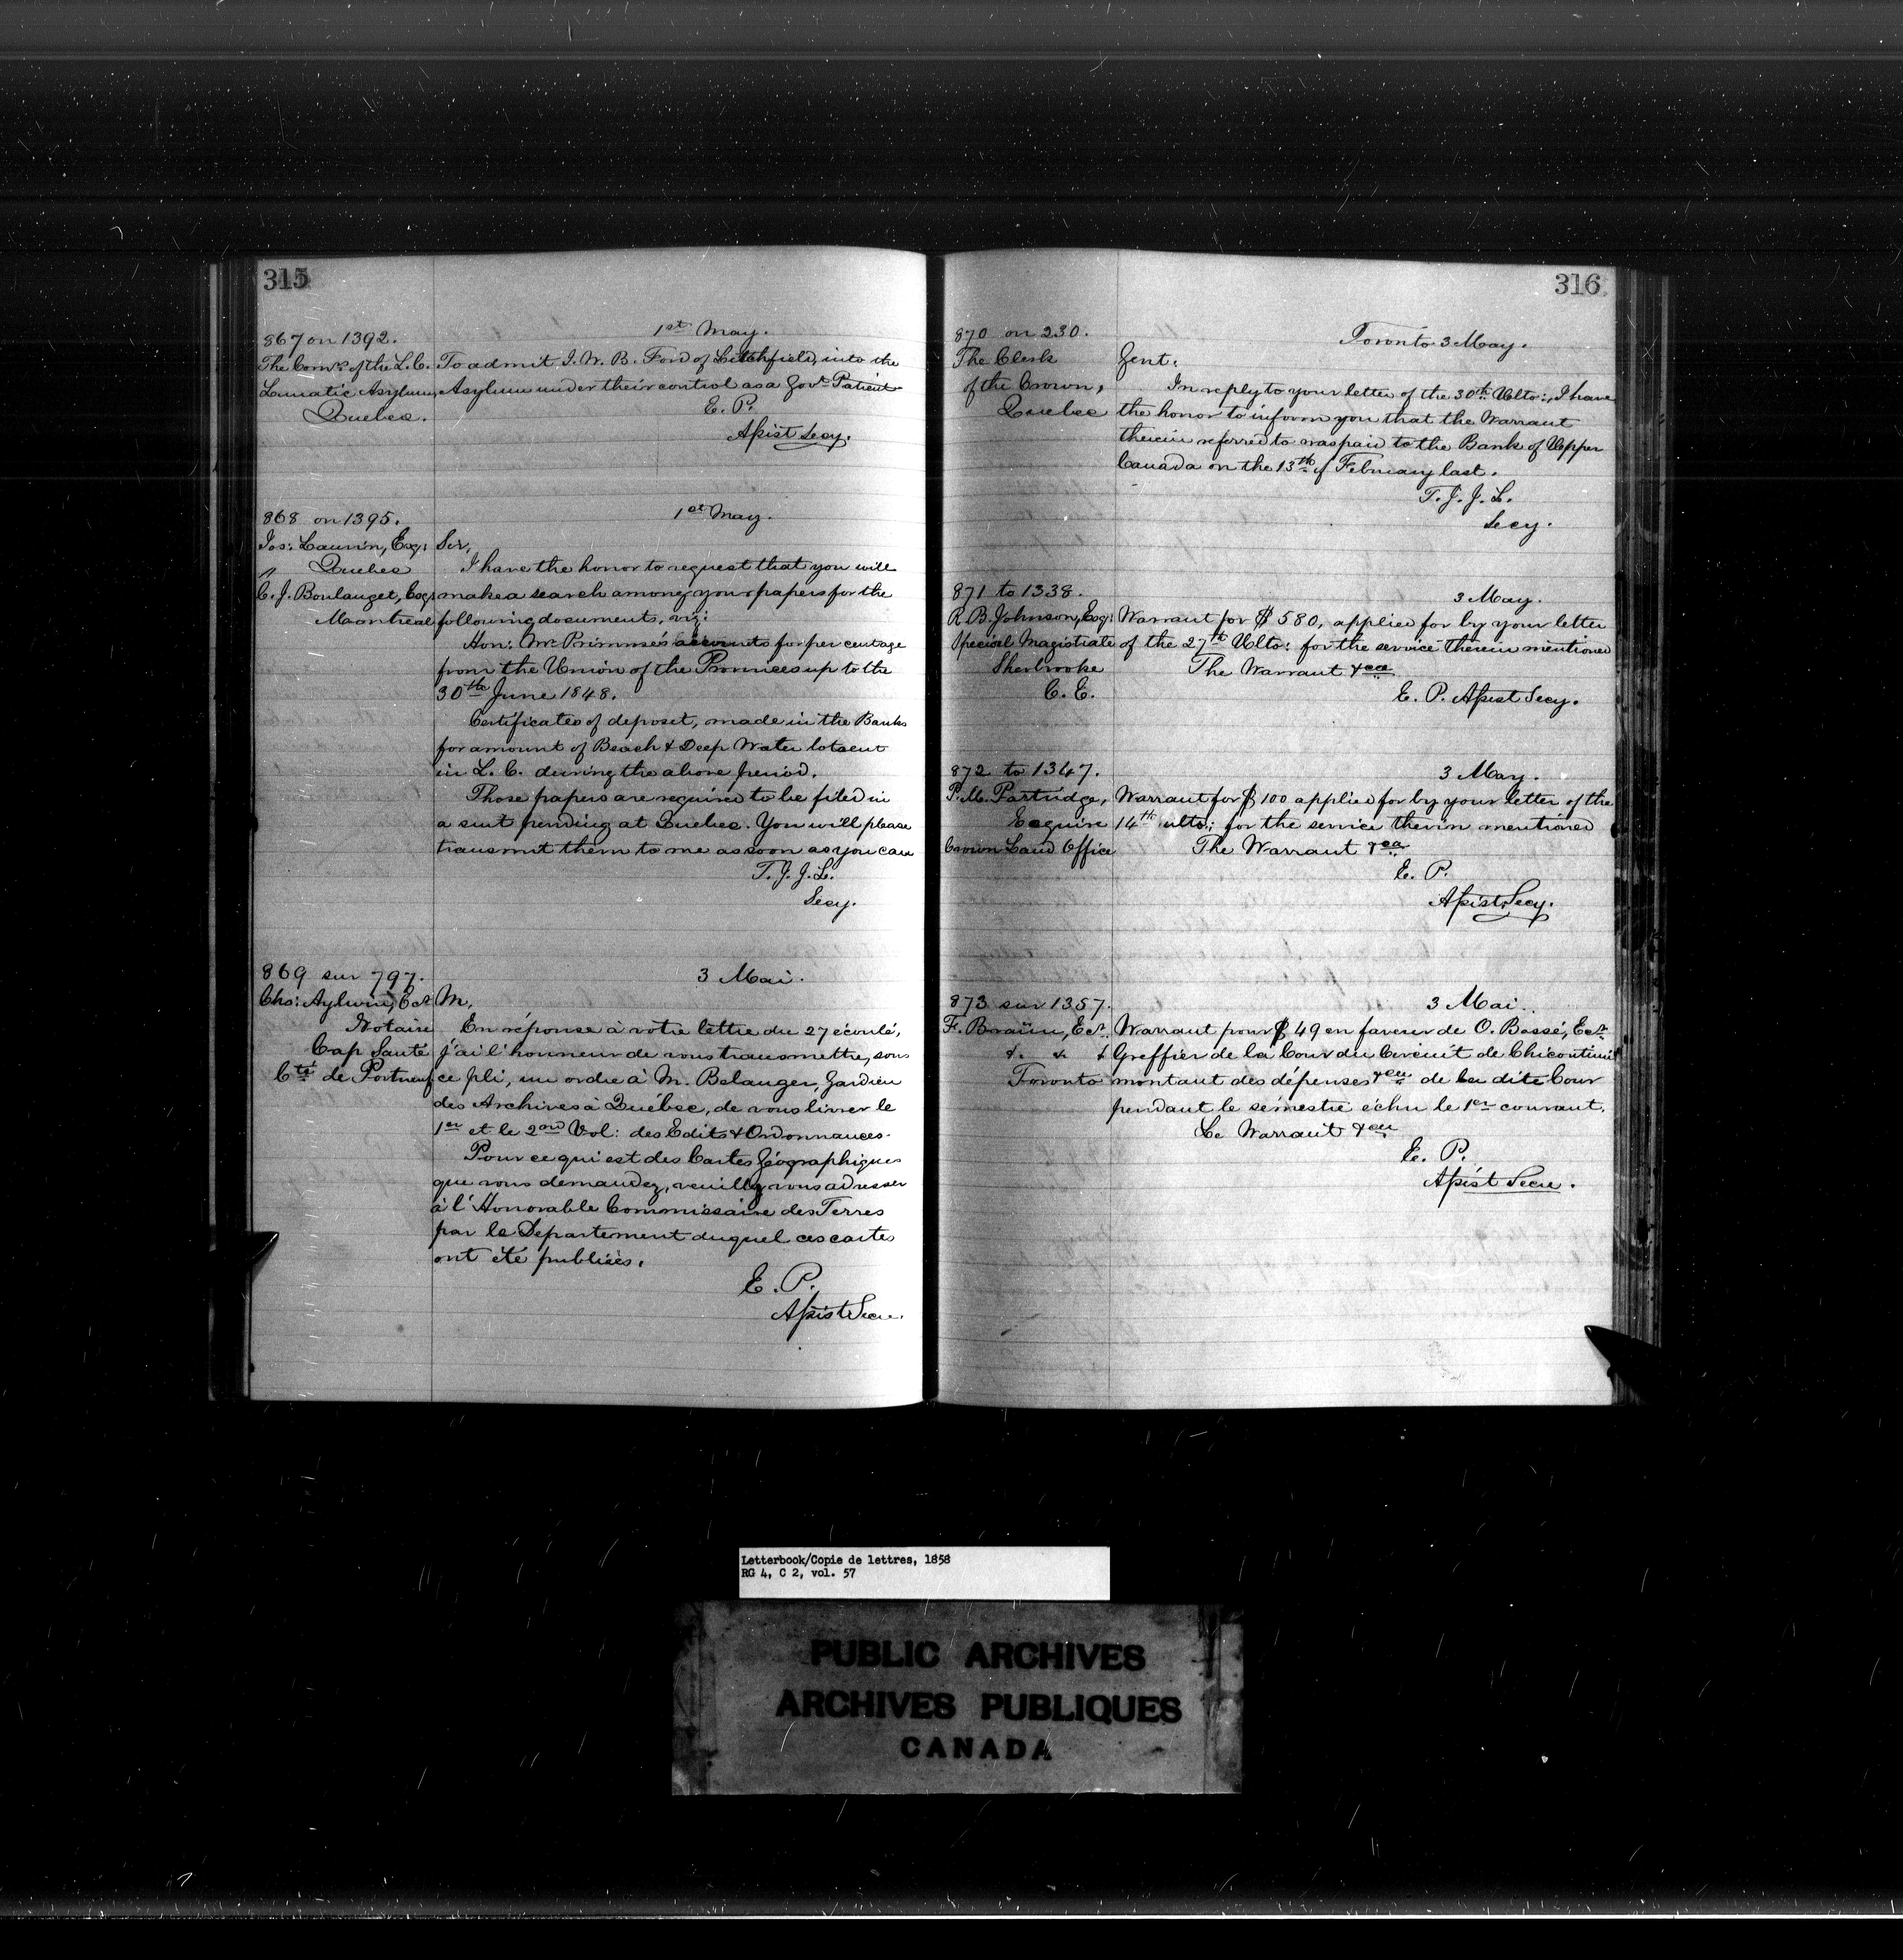 315
867 on 1392.
1st May.
The Comrs of the L. C.
Lunatic Asylum,
Quebec.
To admit J. W. B. Ford of Litchfield, into the
Asylum under their control as a Govt Patient
E. P.
Assist Secy.
868 on 1395.
1st May.
Jos: Laurin, Esq:
Quebec
C. J. Boulanget, Esq:
Montreal
Sir,
I have the honor to request that you will
make a search among your papers for the
following documents, viz:
Hon: Mr Primme's accounts for per centage
from the Union of the Provinces up to the
30th June 1848.
Certificates of deposit, made in the Banks
for amount of Beach & Deep Water lots
in L. C. during the above period.
Those papers are required to be filed in
a suit pending at Quebec. You will please
transmit them to me as soon as you can
T. J. J. L.
Secy.
869 sur 797.
3 Mai.
Chs: Aylwin, Ecr
Notaire
Cap Santé
Cté de Portneuf
M,
En réponse à votre lettre du 27 écoulé,
j'ai l'honneur de vous transmettre, sous
ce pli, un ordre à M. Belanger, Gardien
des Archives à Québec, de vous livrer le
1er et le 2nd Vol: des Edits & Ordonnances.
Pour ce qui est des Cartes Géographiques
que vous demandez, veuillez vous adresser
à l'Honorable Commissaire des Terres
par le Departement duquel ces cartes
ont été publiées.
E. P.
Assist Secre.
316
870 on 230.
Toronto 3 May.
The Clerk
of the Crown,
Quebec
Gent:
In reply to your letter of the 30th Ulto:, I have
the honor to inform you that the Warrant
therein referred to was paid to the Bank of Upper
Canada on the 13th of February last.
T. J. J. L.
Secy.
871 to 1338.
3 May.
R. B. Johnson, Esq:
Special Magistrate
Sherbrooke
C. E.
Warrant for $ 580, applied for by your letter
of the 27th Ulto: for the service therein mentioned
The Warrant &ca
E. P. Assist Secy.
872 to 1347.
3 May.
P. M. Partridge,
Esquire
Crown Land Office
Warrant for $ 100 applied for by your letter of the
14th ulto:; for the service therin mentioned
The Warrant &ca
E. P.
Assist Secy.
873 sur 1357.
3 Mai.
F. Braün, Ecr.
&. & &
Toronto
Warrant pour $ 49 en faveur de O. Bossé, Ecr
Greffier de la Cour du Circuit de Chicoutimi
montant des dépenses &ca de la dite Cour
pendant le sémestre échu le 1er courant.
Le Warrant &ca
E. P.
Assist Secre.
Letterbook/Copie de lettres, 1858
RG 4, C 2, vol. 57
PUBLIC ARCHIVES
ARCHIVES PUBLIQUES
CANADA